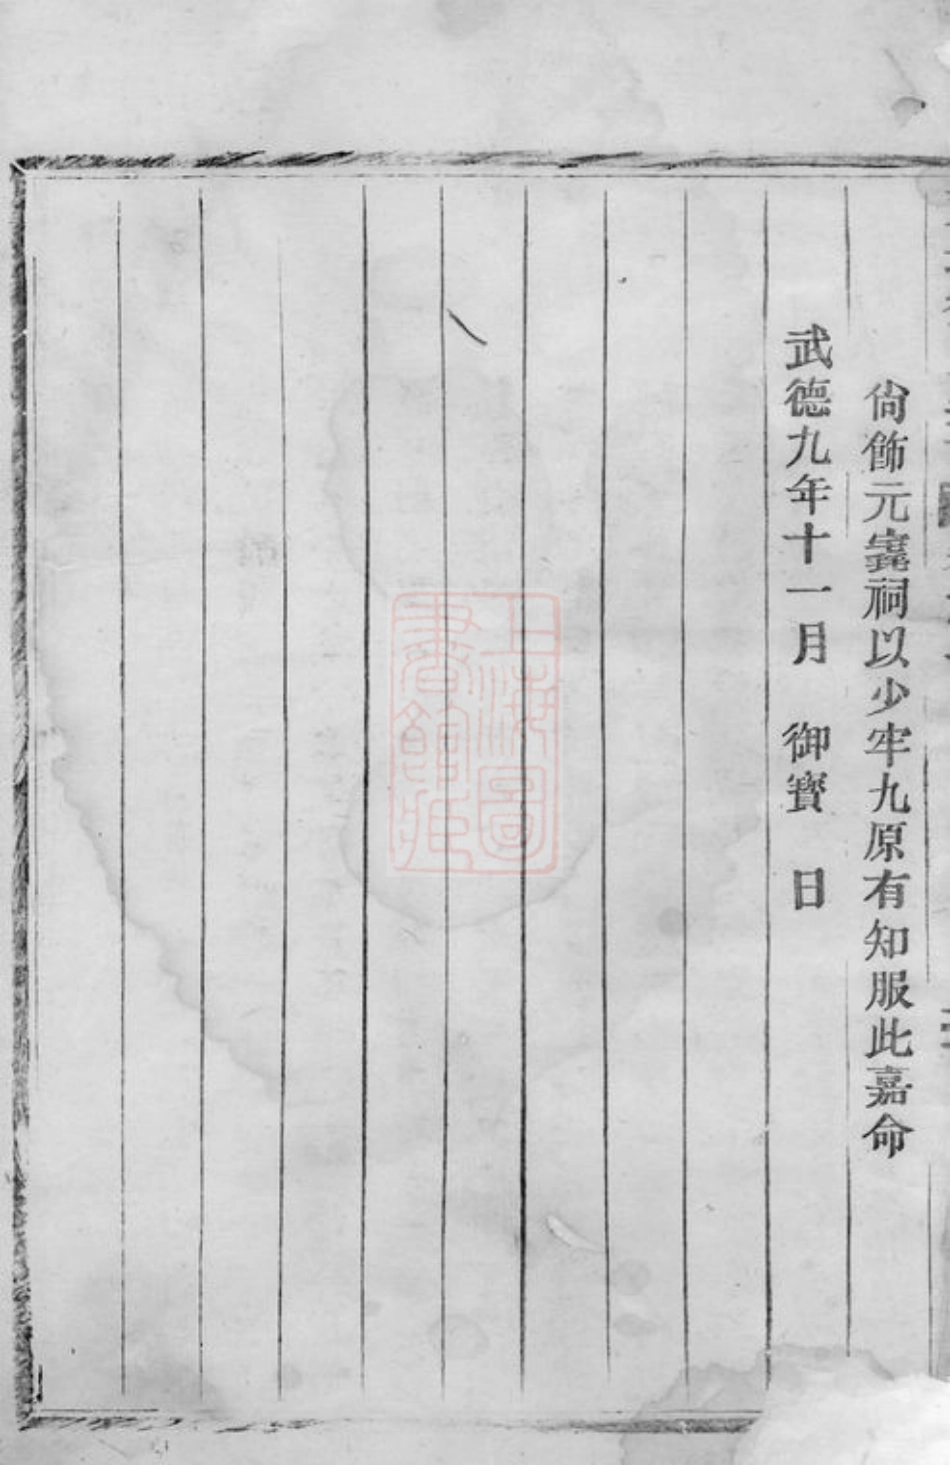 尙飾元竁祠以少牢九原有知服此嘉命
武德九年十一月　御寳　日
上海圖
書館藏